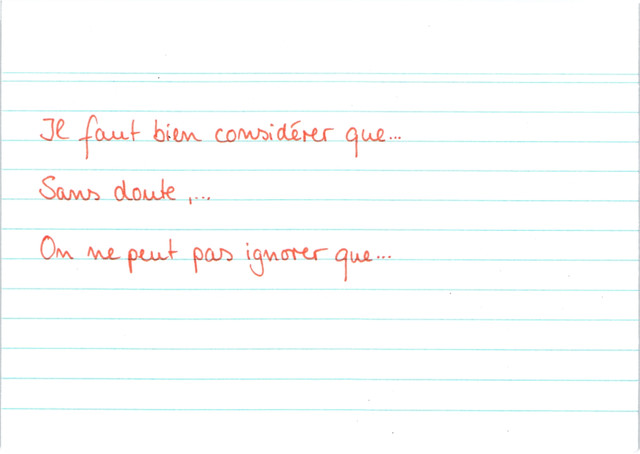 Il faut bien considérer que...
Sans doute,...
On ne peut pas ignorer que...